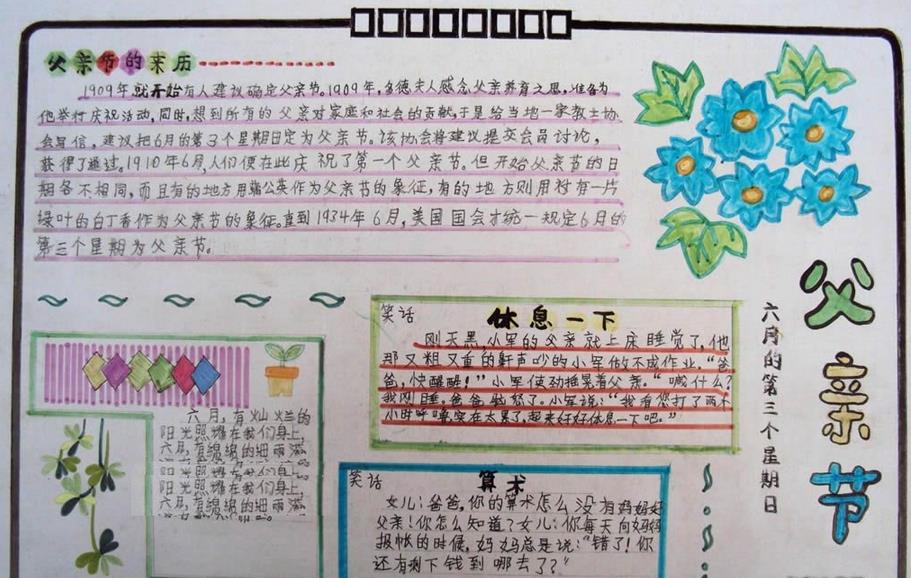 父亲节的来历
1909年就开始有人建议确定父亲节。1909年,多德夫人感念父亲养育之恩,准备为
他举行庆祝活动,同时,想到所有的父亲对家庭和社会的贡献,于是给当地一家教士协
会写信,建议把6月的第3个星期日定为父亲节。该协会将建议提交会员讨论,
获得了通过。1910年6月,人们便在此庆祝了第一个父亲节。但开始父亲节的日
期各不相同,而且有的地方用蒲公英作为父亲节的象征,有的地方则用衬有一片
绿叶的白丁香作为父亲节的象征。直到1934年6月,美国国会才统一规定6月的
第三个星期为父亲节。
父亲节
六月的第三个星期日
笑话
休息一下
刚天黑,小军的父亲就上床睡觉了,他
那又粗又重的鼾声吵的小军做不成作业。“爸
爸,快醒醒!”小军使劲摇晃着父亲。“喊什么?
我刚睡。爸爸恼怒了。小军说:“我看您打了两个
小时呼噜实在太累了,起来好好休息一下吧。”
六月,有灿烂的
阳光照耀在我们身上,
六月,有绵绵的细雨滋
阳光照耀在我们身上,
六月,有绵绵的细雨滋
笑话
算术
女儿:爸爸,你的算术怎么没有妈妈好
父亲!你怎么知道?女儿:你每天向妈妈
报帐的时候,妈妈总是说:“错了!你
还有剩下钱到哪去了?”